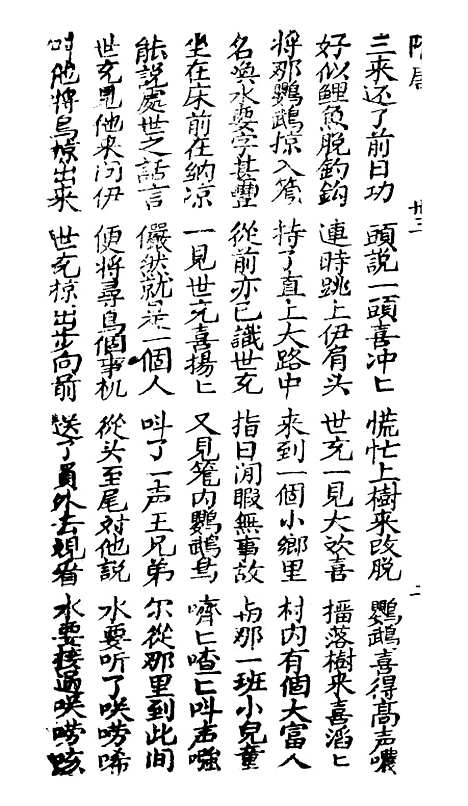 隋唐 廿三
三来还了前日功 頭説一頭喜冲匕 慌忙上樹来改脱 鸚鵡喜得高声嚷
好似鯉魚脱釣鈎 連時跳上伊肩头 世充一見大欢喜 搢落樹来喜滔匕
將那鸚鵡掠入笼 持了直上大路中 来到一個小鄉里 村内有個大富人
名喚水要字甚豐 從前亦已識世充 指日閒暇無事故 与那一班小兒童
坐在床前在納凉 一見世充喜揚匕 又見笼内鸚鵡鳥 嚌匕喳匕叫声
能說處世之話言 儼然就是一個人 叫了一声王兄弟 尔從那里到此間
世充見他来问伊 便將尋鳥個事机 從头至尾对他説 水要听了唉唠唏
叫他將鳥掠出来 世充掠出步向前 送了員外去观看 水要接過唉唠咳